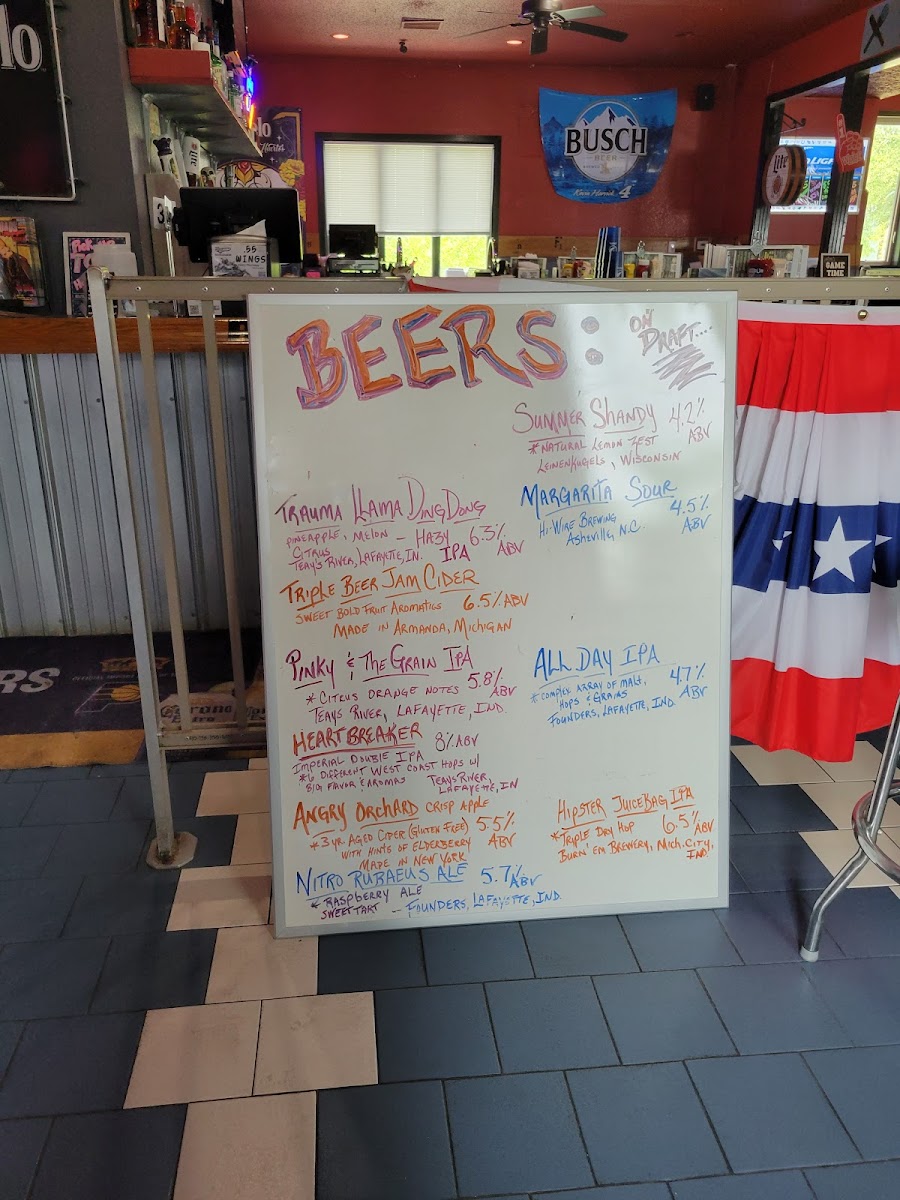 BEERS:
ON
DRAFT....
SUMMER SHANDY 4.2%
ABV
*NATURAL LEMON ZEST
LEINENKUGELS, WISCONSIN
MARGARITA SOUR
4.5%
ABV
HI-WIRE BREWING
ASHEVILLE, N.C.
TRAUMA LLAMA DING DONG
PINEAPPLE, MELON - HAZY 6.3%
CITRUS IPA ABV
TEAY'S RIVER, LAFAYETTE, IN.
TRIPLE BEER JAM CIDER
SWEET BOLD FRUIT AROMATICS 6.5% ABV
MADE IN ARMANDA, MICHIGAN
PINKY & THE GRAIN IPA
* CITRUS ORANGE NOTES 5.8%
ABV
TEAYS RIVER, LAFAYETTE, IND.
ALL DAY IPA
4.7%
ABV
* COMPLEX ARRAY OF MALT,
HOPS & GRAINS
FOUNDERS, LAFAYETTE, IND.
HEARTBREAKER 8% ABV
IMPERIAL DOUBLE IPA
*6 DIFFERENT WEST COAST HOPS W/
BIG FLAVOR & AROMAS
TEAYS RIVER,
LAFAYETTE, IN
ANGRY ORCHARD CRISP APPLE
* 3 YR. AGED CIDER (GLUTEN FREE) 5.5%
ABV
WITH HINTS OF ELDERBERRY
MADE IN NEW YORK
HIPSTER JUICEBAG IPA
*TRIPLE DRY HOP 6.5%
ABV
BURN 'EM BREWERY, MICH. CITY,
IND.
NITRO RUBAEUS ALE 5.7%
ABV
* RASPBERRY ALE
SWEET TART -- FOUNDERS, LAFAYETTE, IND.
BUSCH
BEER
Kevin Harvick 4
.55
WINGS
Lite
GAME
TIME
ERS
Corona
lo